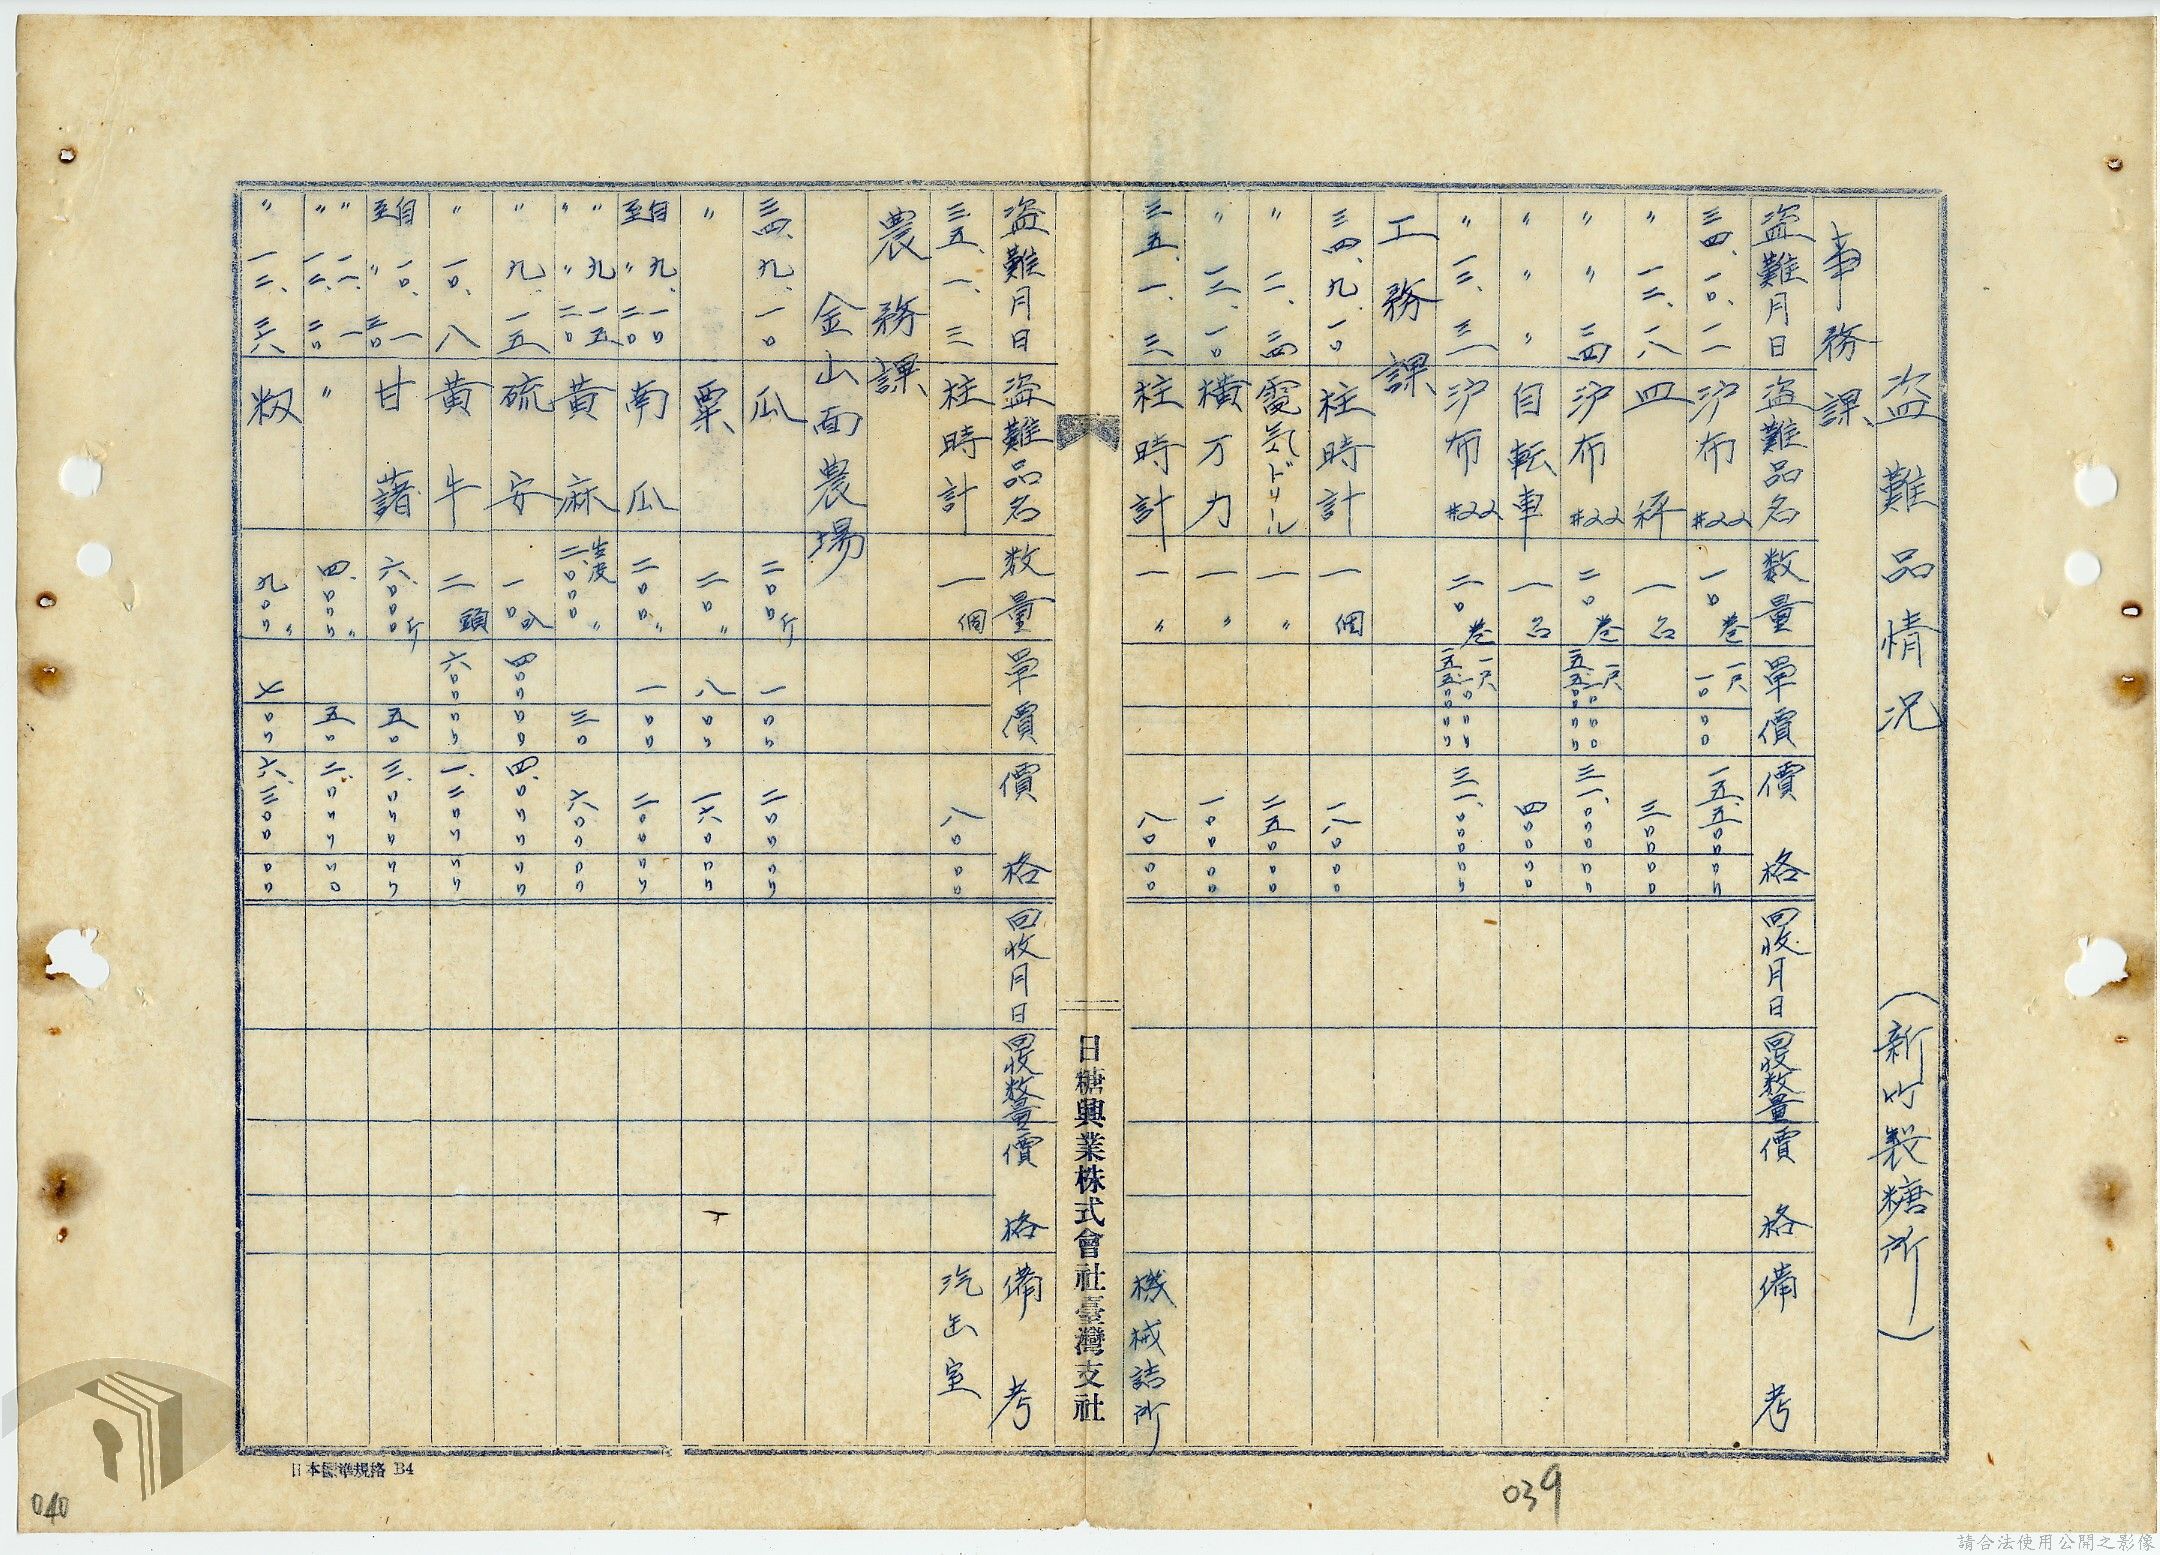 盗難品情況 (新竹製糖所)
事務課
盗難月日 盗難品名 数量 単價 價格 回收月日 回收数量 價格 備考
三四、一〇、一一 沪布#22 一〇巻 一尺 一〇〇〇 一五、五〇〇〇〇
〃 一二、一八 四秤 一台 三〇〇〇〇
〃 〃 二四 沪布#22 二〇巻 三一、〇〇〇〇〇
〃 〃 〃 自転車 一台 四〇〇〇〇
〃 一二、三一 沪布#22 二〇巻 三一、〇〇〇〇〇
工務課
三四、九、一〇 柱時計 一個 一八〇〇〇
〃 一一、二四 電気ドリール 一〃 二五〇〇〇
〃 一二、一〇 横万力 一〃 一〇〇〇〇
三五、一、三 柱時計 一〃 八〇〇〇 機械詰所
日糖興業株式會社臺灣支社
盗難月日 盗難品名 数量 単價 價格 回收月日 回收数量 價格 備考
三五、一、三 柱時計 一個 八〇〇〇 汽缶室
農務課
金山面農場
三四、九、一〇 瓜 二〇〇斤 一〇〇 二〇〇〇〇
〃 粟 二〇〃 八〇〇 一六〇〇〇
自至〃九、一〇二〇 南瓜 二〇〇〃 一〇〇 二〇〇〇〇
〃〃 〃九、一五二〇 黄麻 生皮二、〇〇〇〃 三〇 六〇〇〇〇
〃 九、一五 硫安 一〇叺 四〇〇〇〇 四、〇〇〇〇〇
〃 一〇、八 黄牛 二頭 六〇〇〇〇 一、二〇〇〇〇
自至〃一〇、一三〇 甘藷 六、〇〇〇斤 五〇 三、〇〇〇〇〇
〃〃 一一、一一二、二〇 〃 四、〇〇〇〃 五〇 二、〇〇〇〇〇
〃 一二、二六 籾 九〇〇〃 七〇〇 六、三〇〇〇〇
日本標準規格 B4
039
040
請合法使用公開之影像